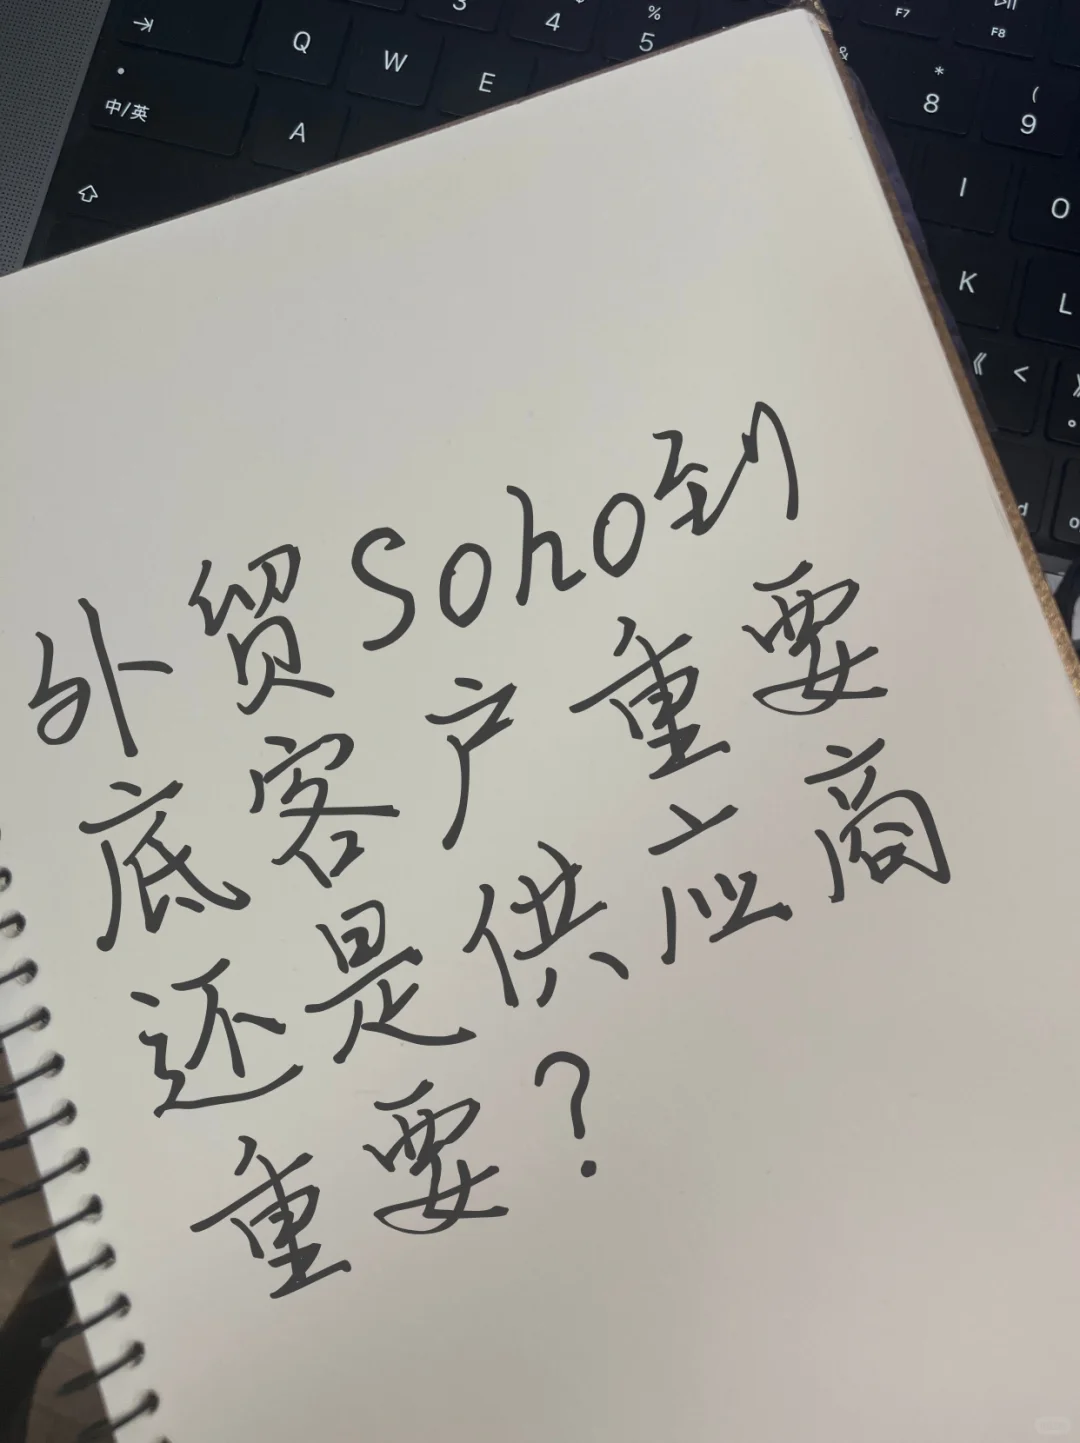 3
4
%
5
F7
F8
Q
W
E
&
*
8
(
9
中/英
A
I
O
K
L
《 <
》
。
外贸Soho到
底客户重要
还是供应商
重要?